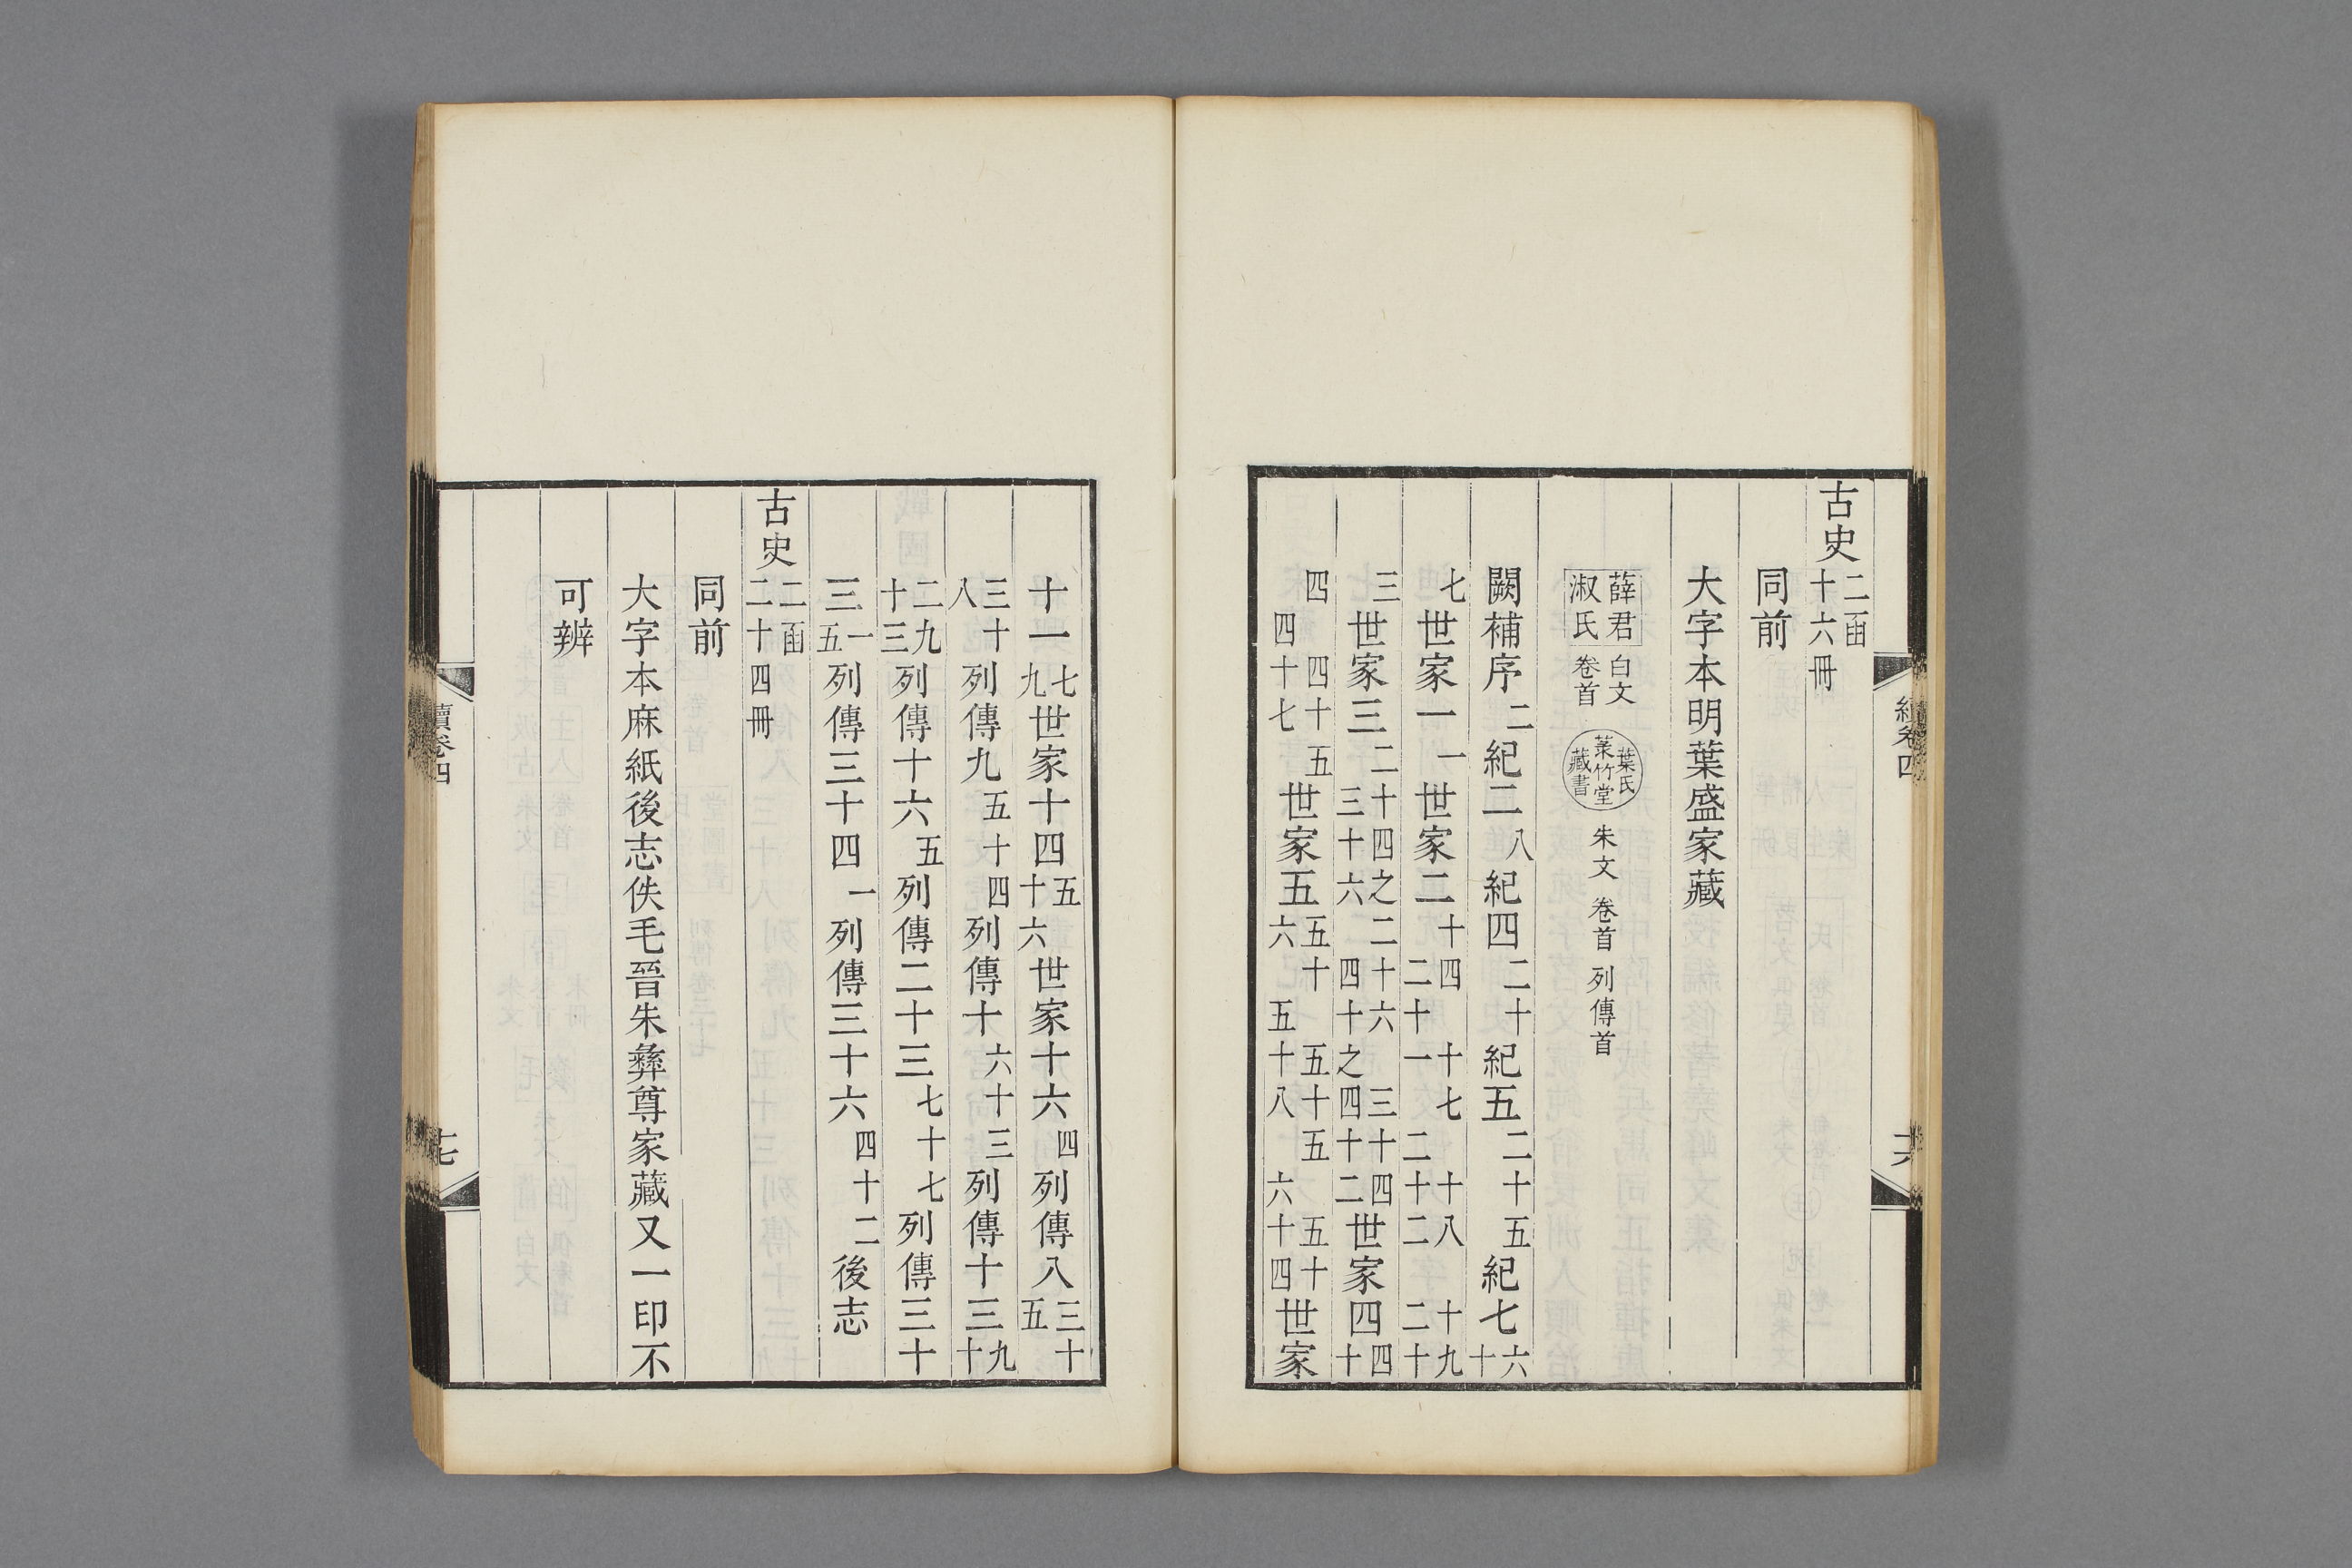 古史二函十六冊
同前
大字本明葉盛家藏
薛君淑氏白文卷首葉氏菉竹堂藏書朱文卷首列傳首
闕補序二紀二八紀四二十紀五二十五紀七六十
七世家一一世家二十四十七十八十九二十一二十二二十
三世家三二十四之二十六三十四三十六四十之四十二世家四四十
四四十五四十七世家五五十五十五五十六五十八六十四世家
續卷四
十六
十一七九世家十四五十六世家十六四列傳八三十五
三十八列傳九五十四列傳十六十三列傳十三九十
二九十三列傳十六五列傳二十三七十七列傳三十
三一五列傳三十四一列傳三十六四十二後志
古史二函二十四冊
同前
大字本麻紙後志佚毛晉朱彝尊家藏又一印不
可辨
續卷四
十七